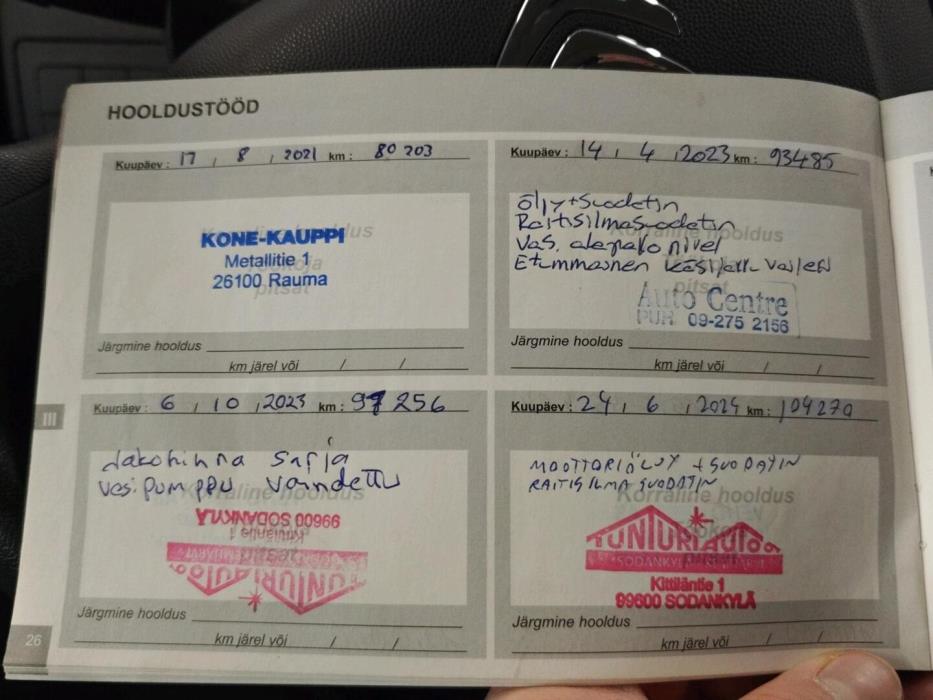 HOOLDUSTÖÖD
Kuupäev : 17 / 8 / 2021 km : 80 203
KONE-KAUPPI
Metallitie 1
26100 Rauma
Järgmine hooldus
km järel või / /
Kuupäev : 14 / 4 / 2023 km : 93485
öljy+suodatin
Raitisilmasuodatin
Vas. alapallonivel
Korraline hooldus
Auto Centre
PUH. 09-275 2156
Järgmine hooldus
km järel või / /
III
Kuupäev : 6 / 10 / 2023 km : 97 256
Jakohihna sarja
vesipumppu vaihdettu
Korraline hooldus
99600 SODANKYLÄ
Kittiläntie 1
TUNTURIAUTO
Järgmine hooldus
km järel või / /
Kuupäev : 24 / 6 / 2024 km : 104270
MOOTTORIÖLJY + SUODATIN
RAITISILMA SUODATIN
Korraline hooldus
TUNTURIAUTO
SODANKYLÄ
Kittiläntie 1
99600 SODANKYLÄ
Järgmine hooldus
km järel või / /
26